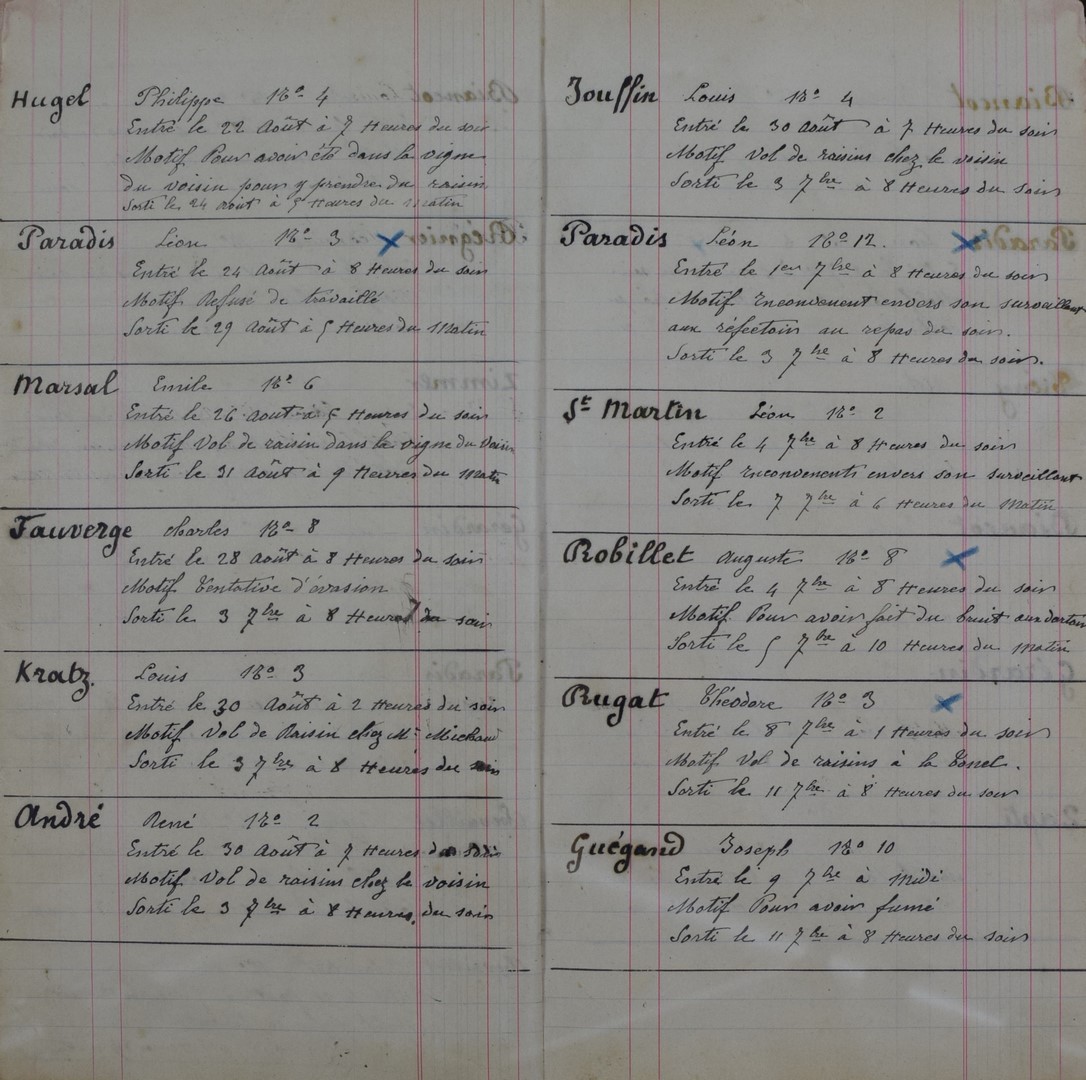 Hugel Philippe No 4
Entré le 22 Août à 7 Heures du soir
Motif Pour avoir été dans la vigne
du voisin pour y prendre du raisin
Sorti le 24 août à 5 Heures du Matin
Paradis Léon No 3
Entré le 24 Août à 8 Heures du soir
Motif Refusé de travaillé
Sorti le 29 Août à 5 Heures du Matin
Marsal Emile No 6
Entré le 26 Aout à 5 Heures du soir
Motif Vol de raisin dans la vigne du Voisin
Sorti le 31 Août à 9 Heures du Matin
Fauverge Charles No 8
Entré le 28 Août à 8 Heures du soir
Motif Tentative d'évasion
Sorti le 3 7bre à 8 Heures du soir
Kratz. Louis No 3
Entré le 30 Août à 2 Heures du soir
Motif Vol de Raisin chez Mr Michaud
Sorti le 3 7bre à 8 Heures du soir
André René No 2
Entré le 30 Août à 7 Heures du soir
Motif Vol de raisins chez le voisin
Sorti le 3 7bre à 8 Heures du soir
Jouffin Louis No 4
Entré le 30 Août à 7 Heures du soir
Motif Vol de raisins chez le voisin
Sorti le 3 7bre à 8 Heures du soir
Paradis Léon No 12.
Entré le 1er 7bre à 8 Heures du soir
Motif Enconvenent envers son surveillant
aux réfectoir au repas du soir.
Sorti le 3 7bre à 8 Heures du soir.
St Martin Léon No 2
Entré le 4 7bre à 8 Heures du soir
Motif enconvenents envers son surveillant
Sorti le 7 7bre à 6 Heures du Matin
Robillet Auguste No 8
Entré le 4 7bre à 8 Heures du soir
Motif Pour avoir fait du bruit aux
Sorti le 5 7bre à 10 Heures du matin
Rugat Théodore No 3
Entré le 8 7bre à 1 Heures du soir
Motif Vol de raisins à la Tonel.
Sorti le 11 7bre à 8 Heures du soir
Guégand Joseph No 10
Entré le 9 7bre à Midi
Motif Pour avoir fumé
Sorti le 11 7bre à 8 Heures du soir